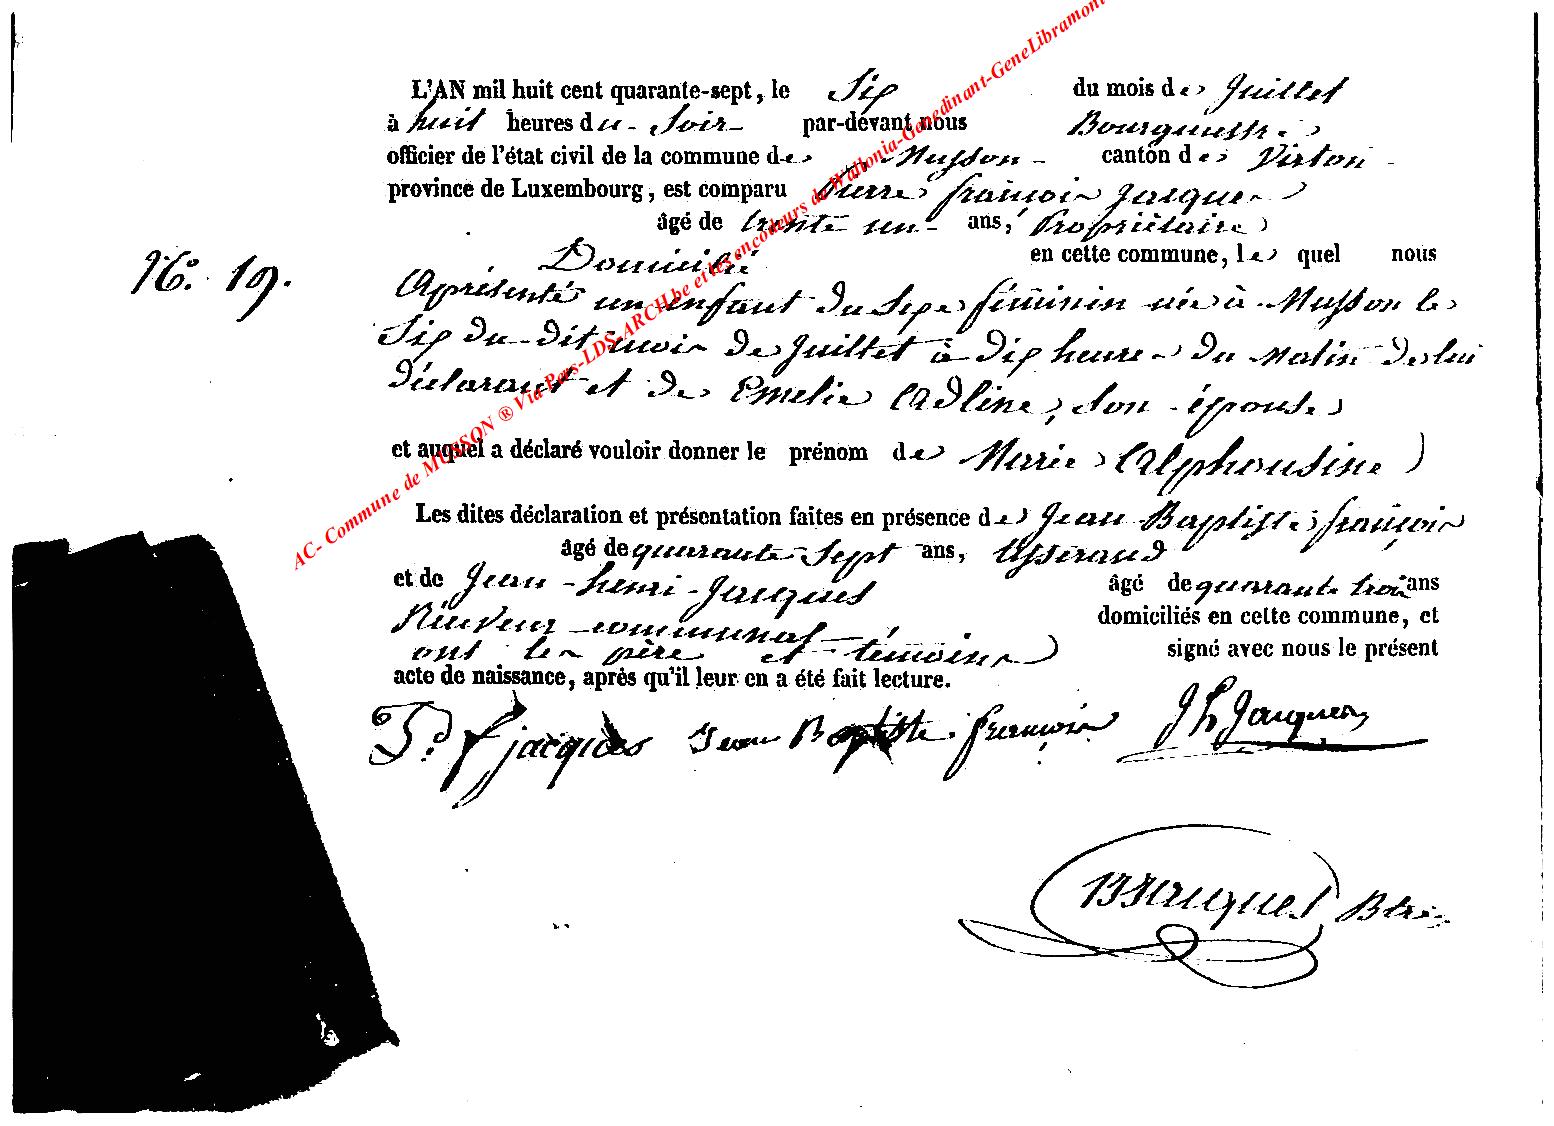 L'AN mil huit cent quarante-sept, le Six du mois de Juillet
à huit heures du Soir par-devant nous Bourguestre
officier de l'état civil de la commune de Musson canton de Virton
province de Luxembourg, est comparu Pierre françois Jacques
âgé de trente un ans, Propriétaire
Domicilié en cette commune, le quel nous
No. 19. Aprésenté un enfant du Sexe féminin née à Musson le
Six du dit mois de Juillet à dix heures du Matin de lui
déclarant et de Emelie Adline, son épouse
et auquel a déclaré vouloir donner le prénom de Marie Alphonsine
Les dites déclaration et présentation faites en présence de Jean Baptiste françois
âgé de quarante Sept ans, tisserand
et de Jean-henri-Jacques âgé de quarante trois ans
domiciliés en cette commune, et
Réceveur communal
ont les père et témoins signé avec nous le présent
acte de naissance, après qu'il leur en a été fait lecture.
P. f jacques Jean Baptiste françois J h Jacques
Jacques
AC- Commune de MUSSON ® Via Pers-LDS-ARCH.be et les encodeurs de Wallonia-Genedinant-GeneLibramont